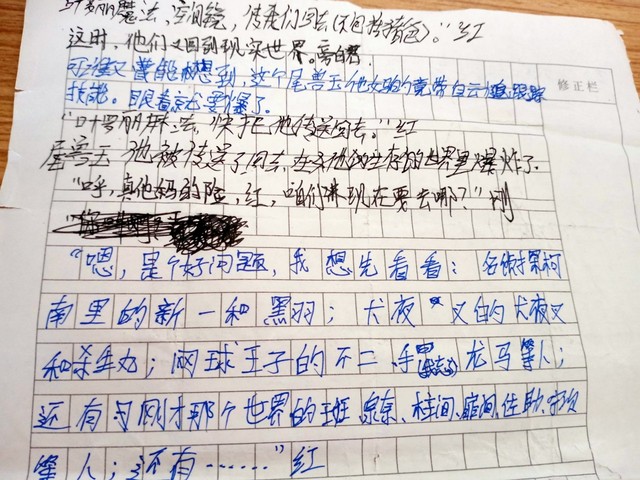 叶罗丽魔法、空间镜，传我们回去(不包括猪爸)。"红
这时，他们又回到现实世界。旁白君
可谁又曾能想到，这个尾兽玉他奶奶的竟带自云追踪
技能。眼看就要爆了。
修正栏
"叶罗丽魔法，快于把他传送回去。"红
尾兽玉他被传送了回去，在他的生存的世界里爆炸了。
"呼，真他妈的险，红，咱们现在要去哪？"刚
"嗯，是个好问题，我想先看看：名侦探柯
南里的新一和黑羽；犬夜叉的犬夜叉
和杀生丸；网球王子的不二、手冢、龙马等人；
还有与刚才那个世界的班、泉奈、柱间、扉间、佐助、
等人；还有……"红